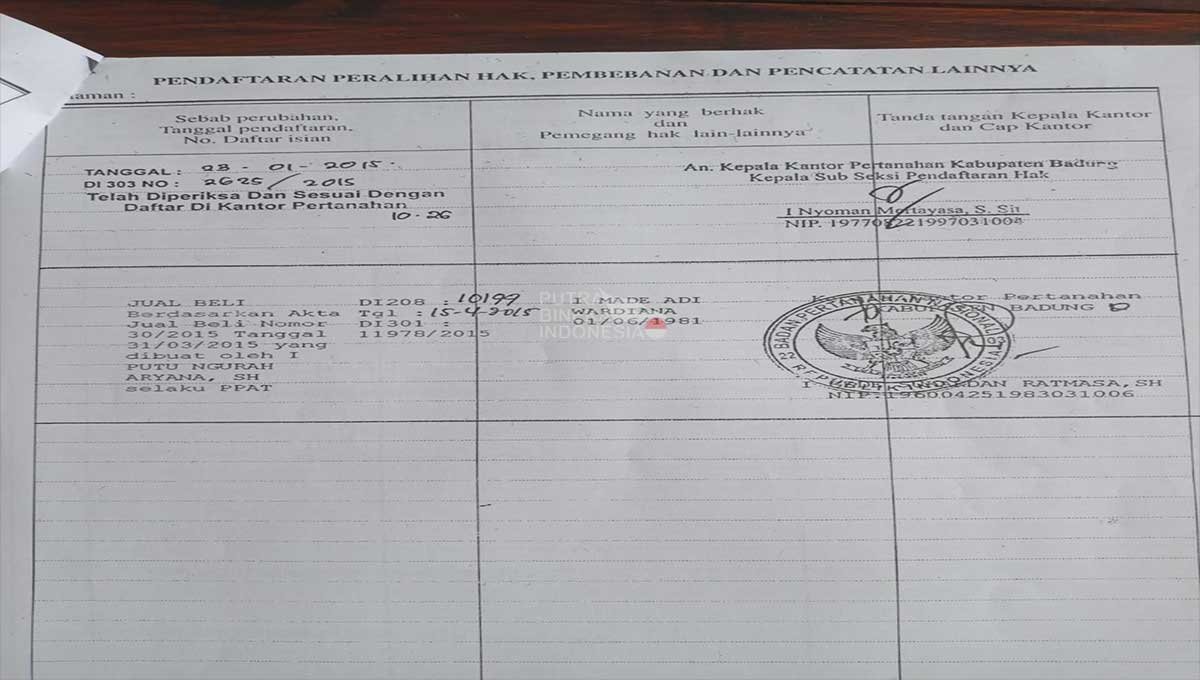 PENDAFTARAN PERALIHAN HAK, PEMBEBANAN DAN PENCATATAN LAINNYA
aman :
Sebab perubahan.
Tanggal pendaftaran.
No. Daftar isian
Nama yang berhak
dan
Pemegang hak lain-lainnya
Tanda tangan Kepala Kantor
dan Cap Kantor
TANGGAL : 28 - 01 - 2015.
DI 303 NO : 2625 / 2015
Telah Diperiksa Dan Sesuai Dengan
Daftar Di Kantor Pertanahan
10-26
An. Kepala Kantor Pertanahan Kabupaten Badung
Kepala Sub Seksi Pendaftaran Hak
I Nyoman Mertayasa, S. Sit
NIP. 197708221997031004
JUAL BELI
Berdasarkan Akta
Jual Beli Nomor
30/2015 Tanggal
31/03/2015 yang
dibuat oleh I
PUTU NGURAH
ARYANA, SH
selaku PPAT
DI208 : 10199
Tgl : 15-4-2015
DI301 :
11978/2015
I MADE ADI
WARDIANA
01/06/1981
PUTRA
BINA
INDONESIA
Pertanahan
KABUPATEN BADUNG
BADAN PERTANAHAN NASIONAL
22
REPUBLIK INDONESIA
RATMASA, SH
NIP:196004251983031006